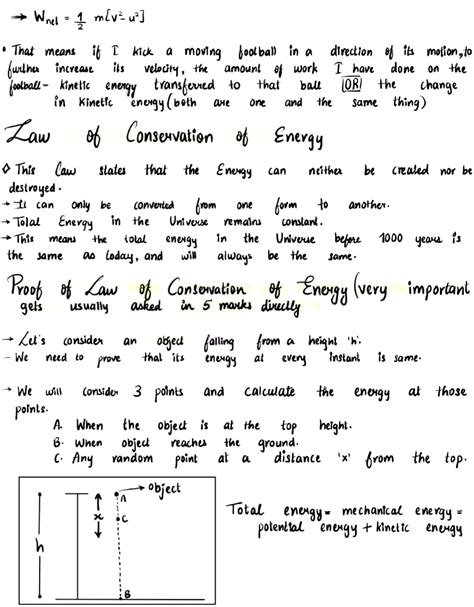 → Wnet = 1/2 m[v²- u²]
• That means if I kick a moving football in a direction of its motion, to
further increase its velocity, the amount of work I have done on the
football - kinetic energy transferred to that ball [OR] the change
in Kinetic energy (both are one and the same thing)
Law of Conservation of Energy
◊ This law states that the Energy can neither be created nor be
destroyed.
→ It can only be converted from one form to another.
→ Total Energy in the Universe remains constant.
→ This means the total energy in the Universe before 1000 years is
the same as today, and will always be the same.
Proof of Law of Conservation of Energy (very important
gets usually asked in 5 marks directly
→ Let's consider an object falling from a height 'h'.
- We need to prove that its energy at every instant is same.
→ We will consider 3 points and calculate the energy at those
points.
A. When the object is at the top height.
B. When object reaches the ground.
C. Any random point at a distance 'x' from the top.
→ object
A
x
C
h
B
Total energy = mechanical energy =
potential energy + kinetic energy